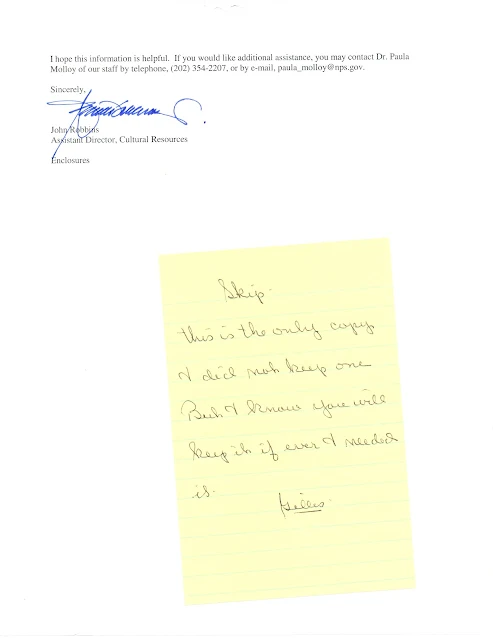 I hope this information is helpful. If you would like additional assistance, you may contact Dr. Paula
Molloy of our staff by telephone, (202) 354-2207, or by e-mail, paula_molloy@nps.gov.
Sincerely,
John Robbins
Assistant Director, Cultural Resources
Enclosures
Skip.
this is the only copy
I did not keep one
But I know you will
keep it if ever I needed
it.